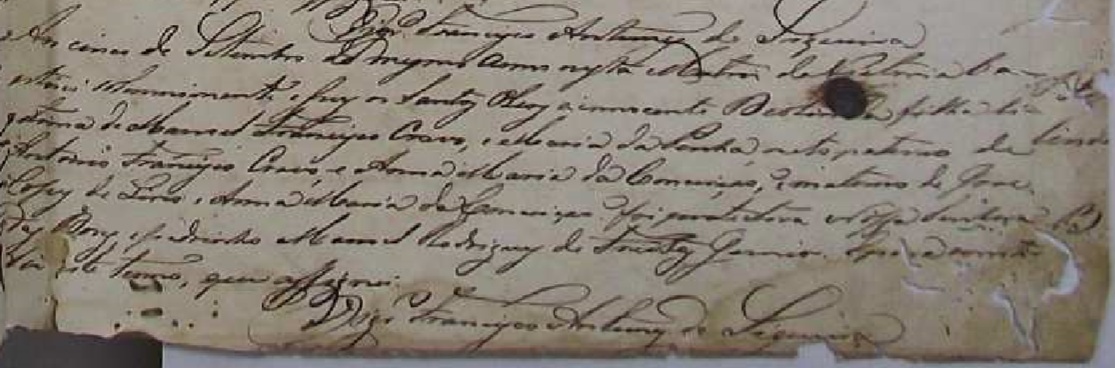 Vigr.º Francisco Antunes de Siqueira
Aos cinco de Setembro do mesmo anno nesta Matriz da Victoria ba-
ptisei solemnimente, e puz os Santos Oleos a innocente filha le-
gitima de Manoel Francisco Cravo, e Maria da Penha neta paterna de
Antonio Francisco Cravo, e Anna Maria da Conceiçaõ, e materna de Jose
Lopes de , e Anna Maria da Conceiçaõ foi protectora Nossa Senhora
, e padrinho Manoel Rodrigues de Junior. e para constar
fiz este termo, que assignei.
Vigr.º Francisco Antunes de Siqueira